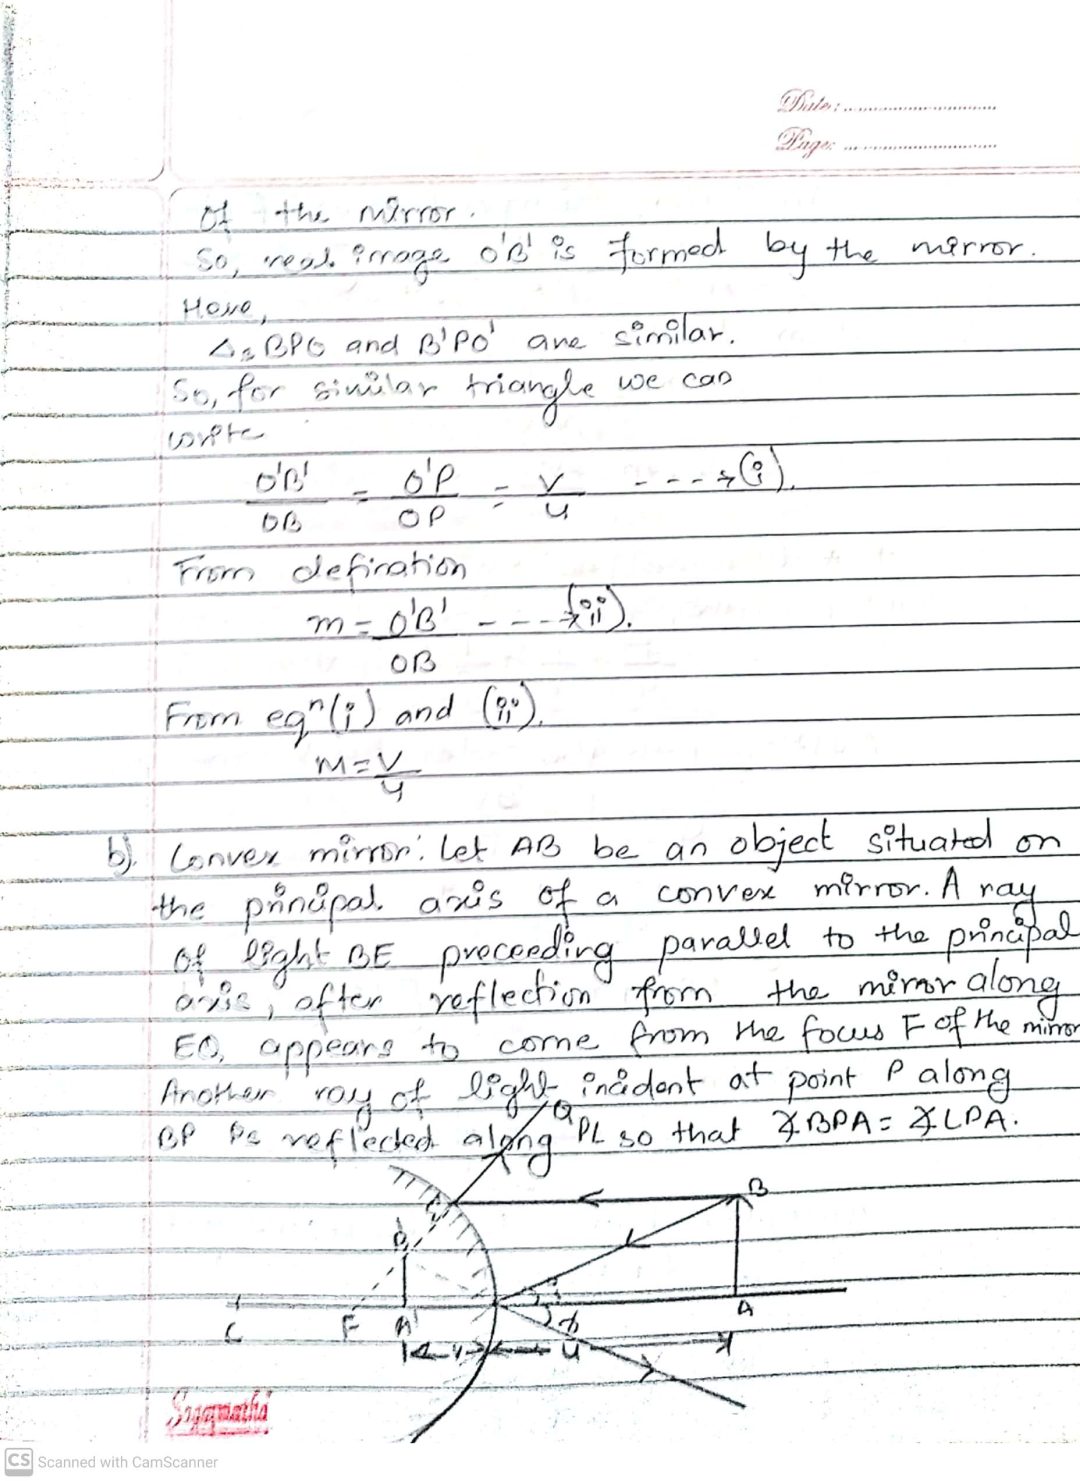 Date:
Page:
of the mirror.
So, real image O'B' is formed by the mirror.
Here,
Δs BPO and B'PO' are similar.
So, for similar triangle we can
write
O'B'/OB = O'P/OP = v/u ---→(i).
From defination
m = O'B'/OB ---→(ii).
From eqⁿ(i) and (ii),
M = v/u
b). Convex mirror: Let AB be an object situated on
the principal axis of a convex mirror. A ray
of light BE preceeding parallel to the principal
axis, after reflection from the mirror along
EQ, appears to come from the focus F of the mirror
Another ray of light incident at point P along
BP is reflected along PL so that ∡BPA = ∡LPA.
Q
B
E
B'
i
r
C F A' A
v u
CS Scanned with CamScanner